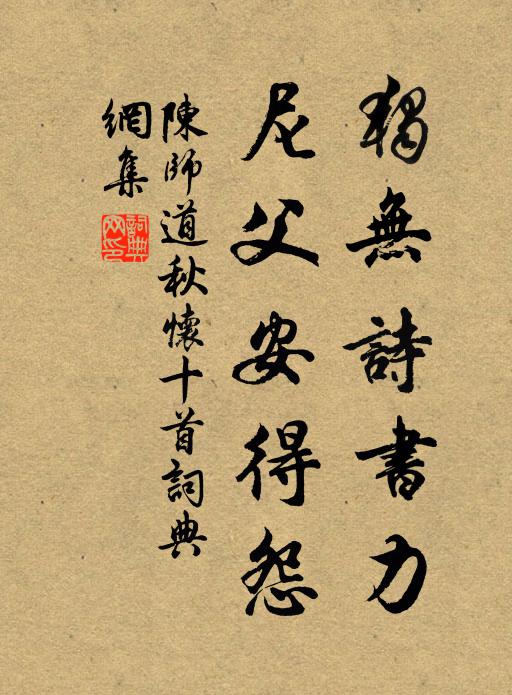 獨無詩書力
尼父安得怨
陳師道秋懷十首詞典
網集
詞典网印